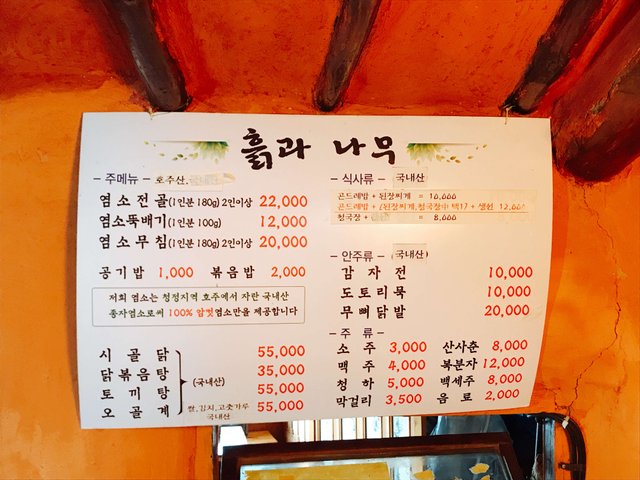 흙과 나무
- 주메뉴 - 호주산,
염소전골(1인분 180g) 2인이상 22,000
염소뚝배기(1인분 100g) 12,000
염소무침(1인분 180g) 2인이상 20,000
공기밥 1,000 볶음밥 2,000
저희 염소는 청정지역 호주에서 자란 국내산
종자염소로써 100% 암컷염소만을 제공합니다
시골닭 55,000
닭볶음탕 35,000
(국내산)
토끼탕 55,000
오골계 쌀,김치,고춧가루 국내산 55,000
- 식사류 - 국내산
곤드레밥 + 된장찌개 = 10,000
곤드레밥 + (된장찌개,청국장中 택1) + 생선 12,000
청국장 + = 8,000
- 안주류 - (국내산)
감자전 10,000
도토리묵 10,000
무뼈닭발 20,000
- 주류 -
소주 3,000 산사춘 8,000
맥주 4,000 복분자 12,000
청하 5,000 백세주 8,000
막걸리 3,500 음료 2,000